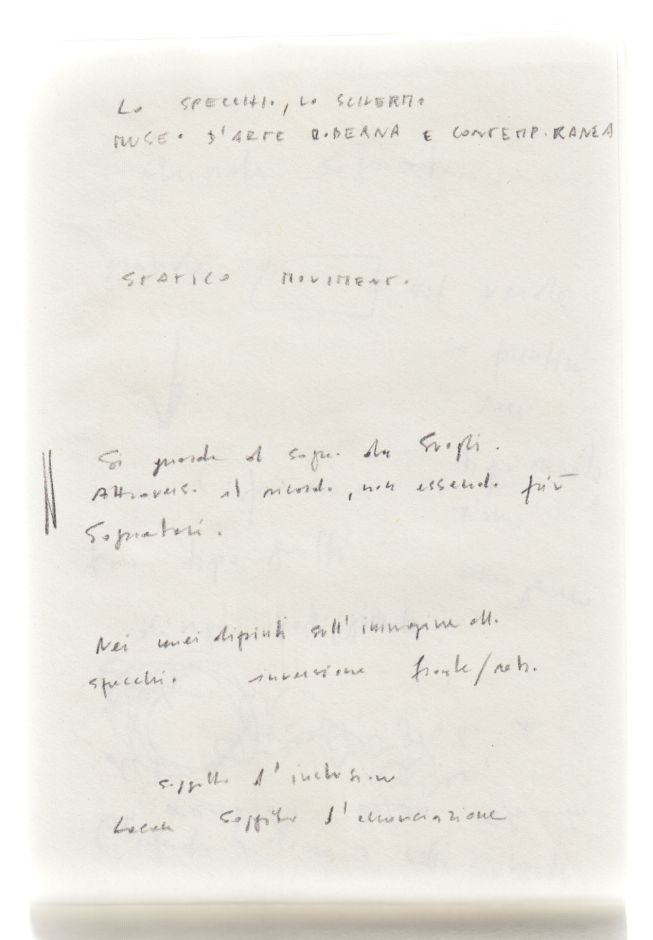 LO SPECCHIO, LO SCHERMO
MUSEO D'ARTE MODERNA E CONTEMPORANEA
STATICO MOVIMENTO
Si guarda al sogno da svegli.
Attraverso il ricordo, non essendo più
sognatori.
Nei miei dipinti sull'immagine allo
specchio inversione fronte/retro.
soggetto d'inclusione
Lacan soggetto d'enunciazione